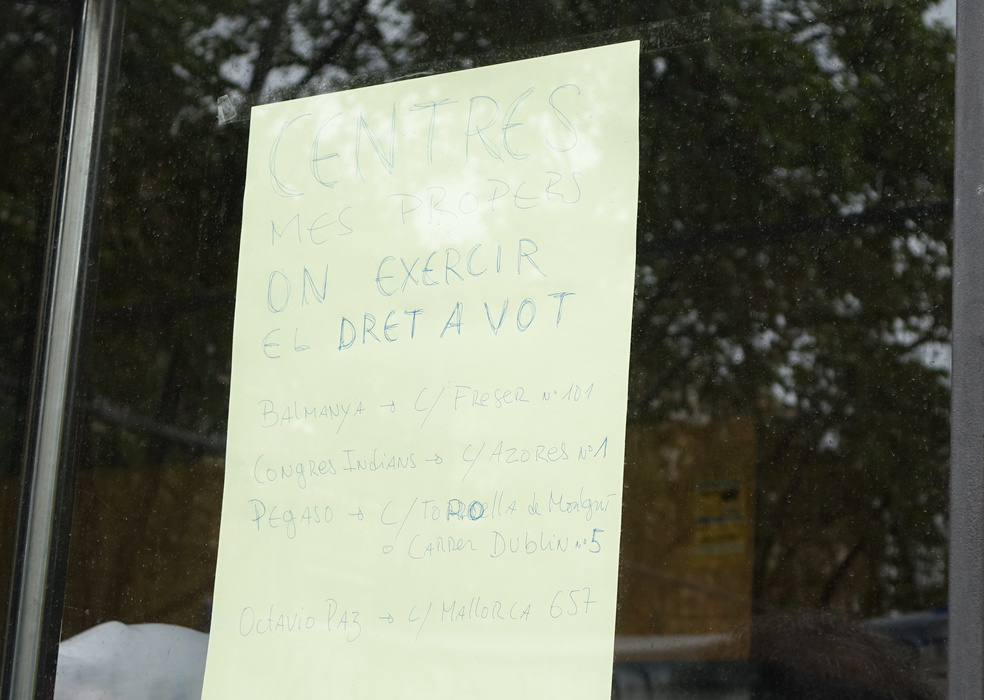 CENTRES
MES PROPERS
ON EXERCIR
EL DRET A VOT
BALMANYA → C/ FRESER Nº 101
CONGRES INDIANS → C/ AZORES Nº 1
PEGASO → C/ TORROELLA de Montgrí
o CARRER DUBLIN Nº 5
OCTAVIO PAZ → C/ MALLORCA 657